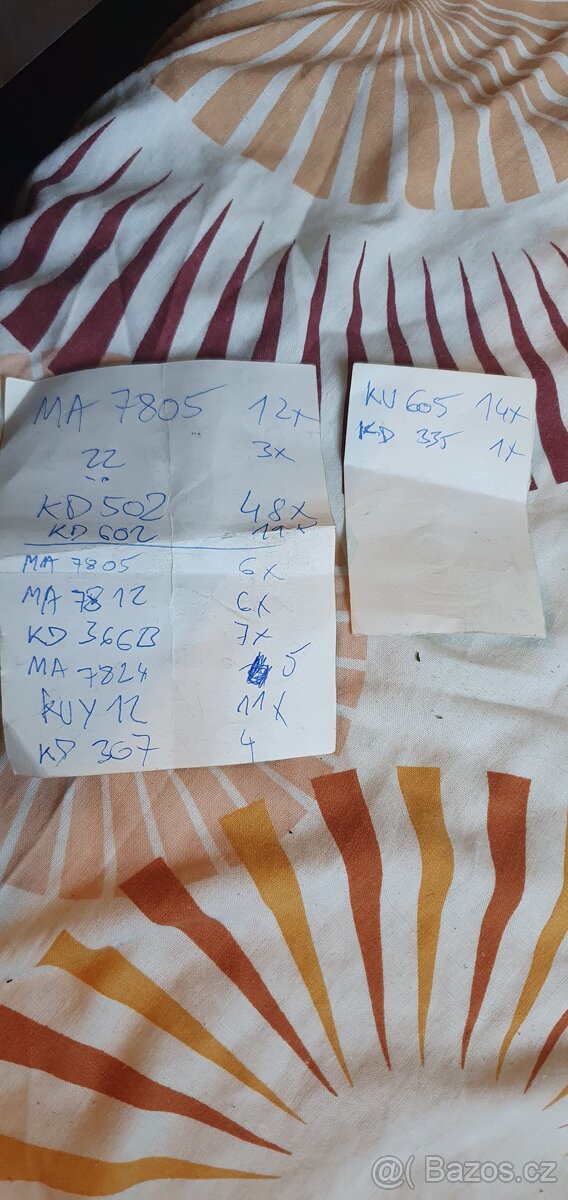 MA 7805 12x
22 3x
KD 502 48x
KD 602 11x
MA 7805 6x
MA 7812 6x
KD 366B 7x
MA 7824 5
KUY 12 11x
KD 367 4
KU 605 14x
KD 335 1x
@( Bazoš.cz